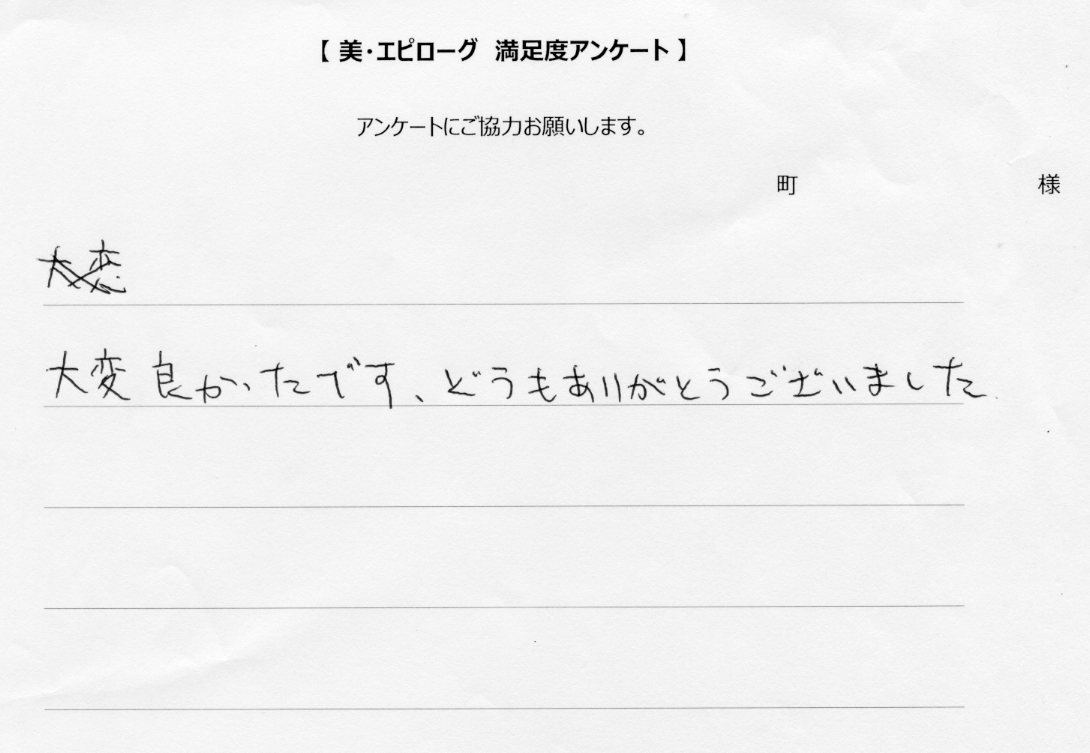 【 美・エピローグ 満足度アンケート 】
アンケートにご協力お願いします。
町 様
大変良かったです、どうもありがとうございました